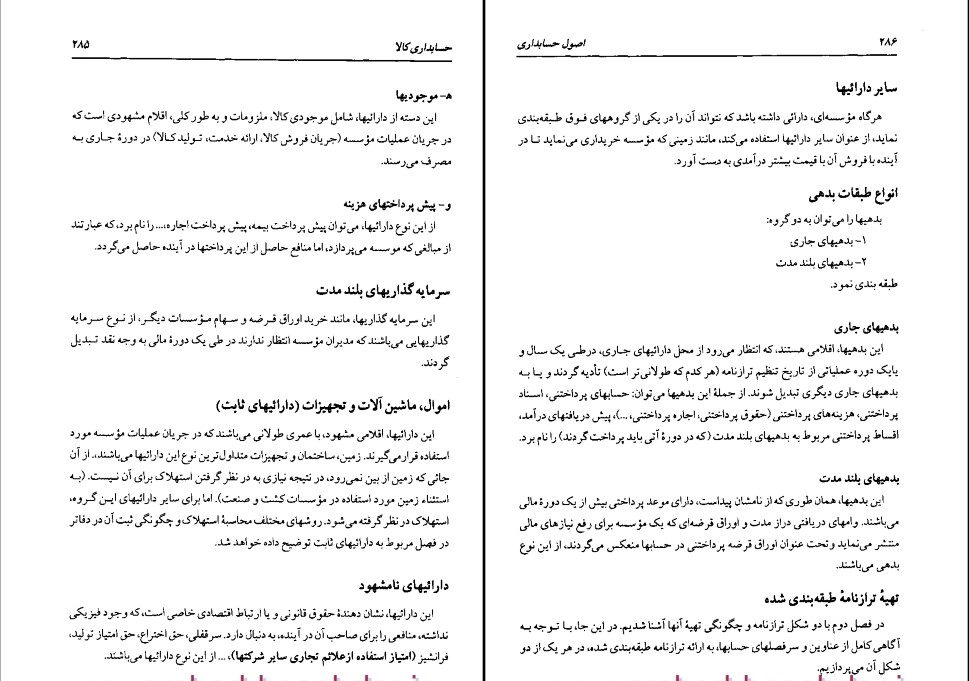 حسابداری کالا ۲۸۵
ه- موجودیها
این دسته از دارائیها، شامل موجودی کالا، ملزومات و به طور کلی، اقلام مشهودی است که
در جریان عملیات مؤسسه (جریان فروش کالا، ارائه خدمت، تولید کالا) در دورۀ جاری به
مصرف می‌رسند.
و- پیش پرداختهای هزینه
از این نوع دارائیها، می‌توان پیش پرداخت بیمه، پیش پرداخت اجاره،... را نام برد، که عبارتند
از مبالغی که موسسه می‌پردازد، اما منافع حاصل از این پرداختها در آینده حاصل می‌گردد.
سرمایه گذاریهای بلند مدت
این سرمایه گذاریها، مانند خرید اوراق قرضه و سهام مؤسسات دیگر، از نوع سرمایه
گذاریهایی می‌باشند که مدیران مؤسسه انتظار ندارند در طی یک دورۀ مالی به وجه نقد تبدیل
گردند.
اموال، ماشین آلات و تجهیزات (دارائیهای ثابت)
این دارائیها، اقلامی مشهود، با عمری طولانی می‌باشند که در جریان عملیات مؤسسه مورد
استفاده قرار می‌گیرند. زمین، ساختمان و تجهیزات متداول‌ترین نوع این دارائیها می‌باشند،. از آن
جائی که زمین از بین نمی‌رود، در نتیجه نیازی به در نظر گرفتن استهلاک برای آن نیست. (به
استثناء زمین مورد استفاده در مؤسسات کشت و صنعت). اما برای سایر دارائیهای این گروه،
استهلاک در نظر گرفته می‌شود. روشهای مختلف محاسبۀ استهلاک و چگونگی ثبت آن در دفاتر
در فصل مربوط به دارائیهای ثابت توضیح داده خواهد شد.
دارائیهای نامشهود
این دارائیها، نشان دهندۀ حقوق قانونی و یا ارتباط اقتصادی خاصی است، که وجود فیزیکی
نداشته، منافعی را برای صاحب آن در آینده، به دنبال دارد. سرقفلی، حق اختراع، حق امتیاز تولید،
فرانشیز (امتیاز استفاده از علائم تجاری سایر شرکتها)، ... از این نوع دارائیها می‌باشند.
۲۸۶ اصول حسابداری
سایر دارائیها
هرگاه مؤسسه‌ای، دارائی داشته باشد که نتواند آن را در یکی از گروههای فوق طبقه‌بندی
نماید، از عنوان سایر دارائیها استفاده می‌کند، مانند زمینی که مؤسسه خریداری می‌نماید تا در
آینده با فروش آن با قیمت بیشتر درآمدی به دست آورد.
انواع طبقات بدهی
بدهیها را می‌توان به دو گروه:
۱- بدهیهای جاری
۲- بدهیهای بلند مدت
طبقه بندی نمود.
بدهیهای جاری
این بدهیها، اقلامی هستند، که انتظار می‌رود از محل دارائیهای جاری، درطی یک سال و
یایک دوره عملیاتی از تاریخ تنظیم ترازنامه (هر کدم که طولانی‌تر است) تأدیه گردند و یا به
بدهیهای جاری دیگری تبدیل شوند. از جملۀ این بدهیها می‌توان: حسابهای پرداختنی، اسناد
پرداختنی، هزینه‌های پرداختنی (حقوق پرداختنی، اجاره پرداختنی، ...)، پیش دریافتهای درآمد،
اقساط پرداختنی مربوط به بدهیهای بلند مدت (که در دورۀ آتی باید پرداخت گردند) را نام برد.
بدهیهای بلند مدت
این بدهیها، همان طوری که از نامشان پیداست، دارای موعد پرداختی بیش از یک دورۀ مالی
می‌باشند. وامهای دریافتی دراز مدت و اوراق قرضه‌ای که یک مؤسسه برای رفع نیازهای مالی
منتشر می‌نماید و تحت عنوان اوراق قرضه پرداختنی در حسابها منعکس می‌گردند، از این نوع
بدهی می‌باشند.
تهیۀ ترازنامۀ طبقه‌بندی شده
در فصل دوم با دو شکل ترازنامه و چگونگی تهیۀ آنها آشنا شدیم. در این جا، با توجه به
آگاهی کامل از عناوین و سرفصلهای حسابها، به ارائه ترازنامه طبقه‌بندی شده، در هر یک از دو
شکل آن می‌پردازیم.